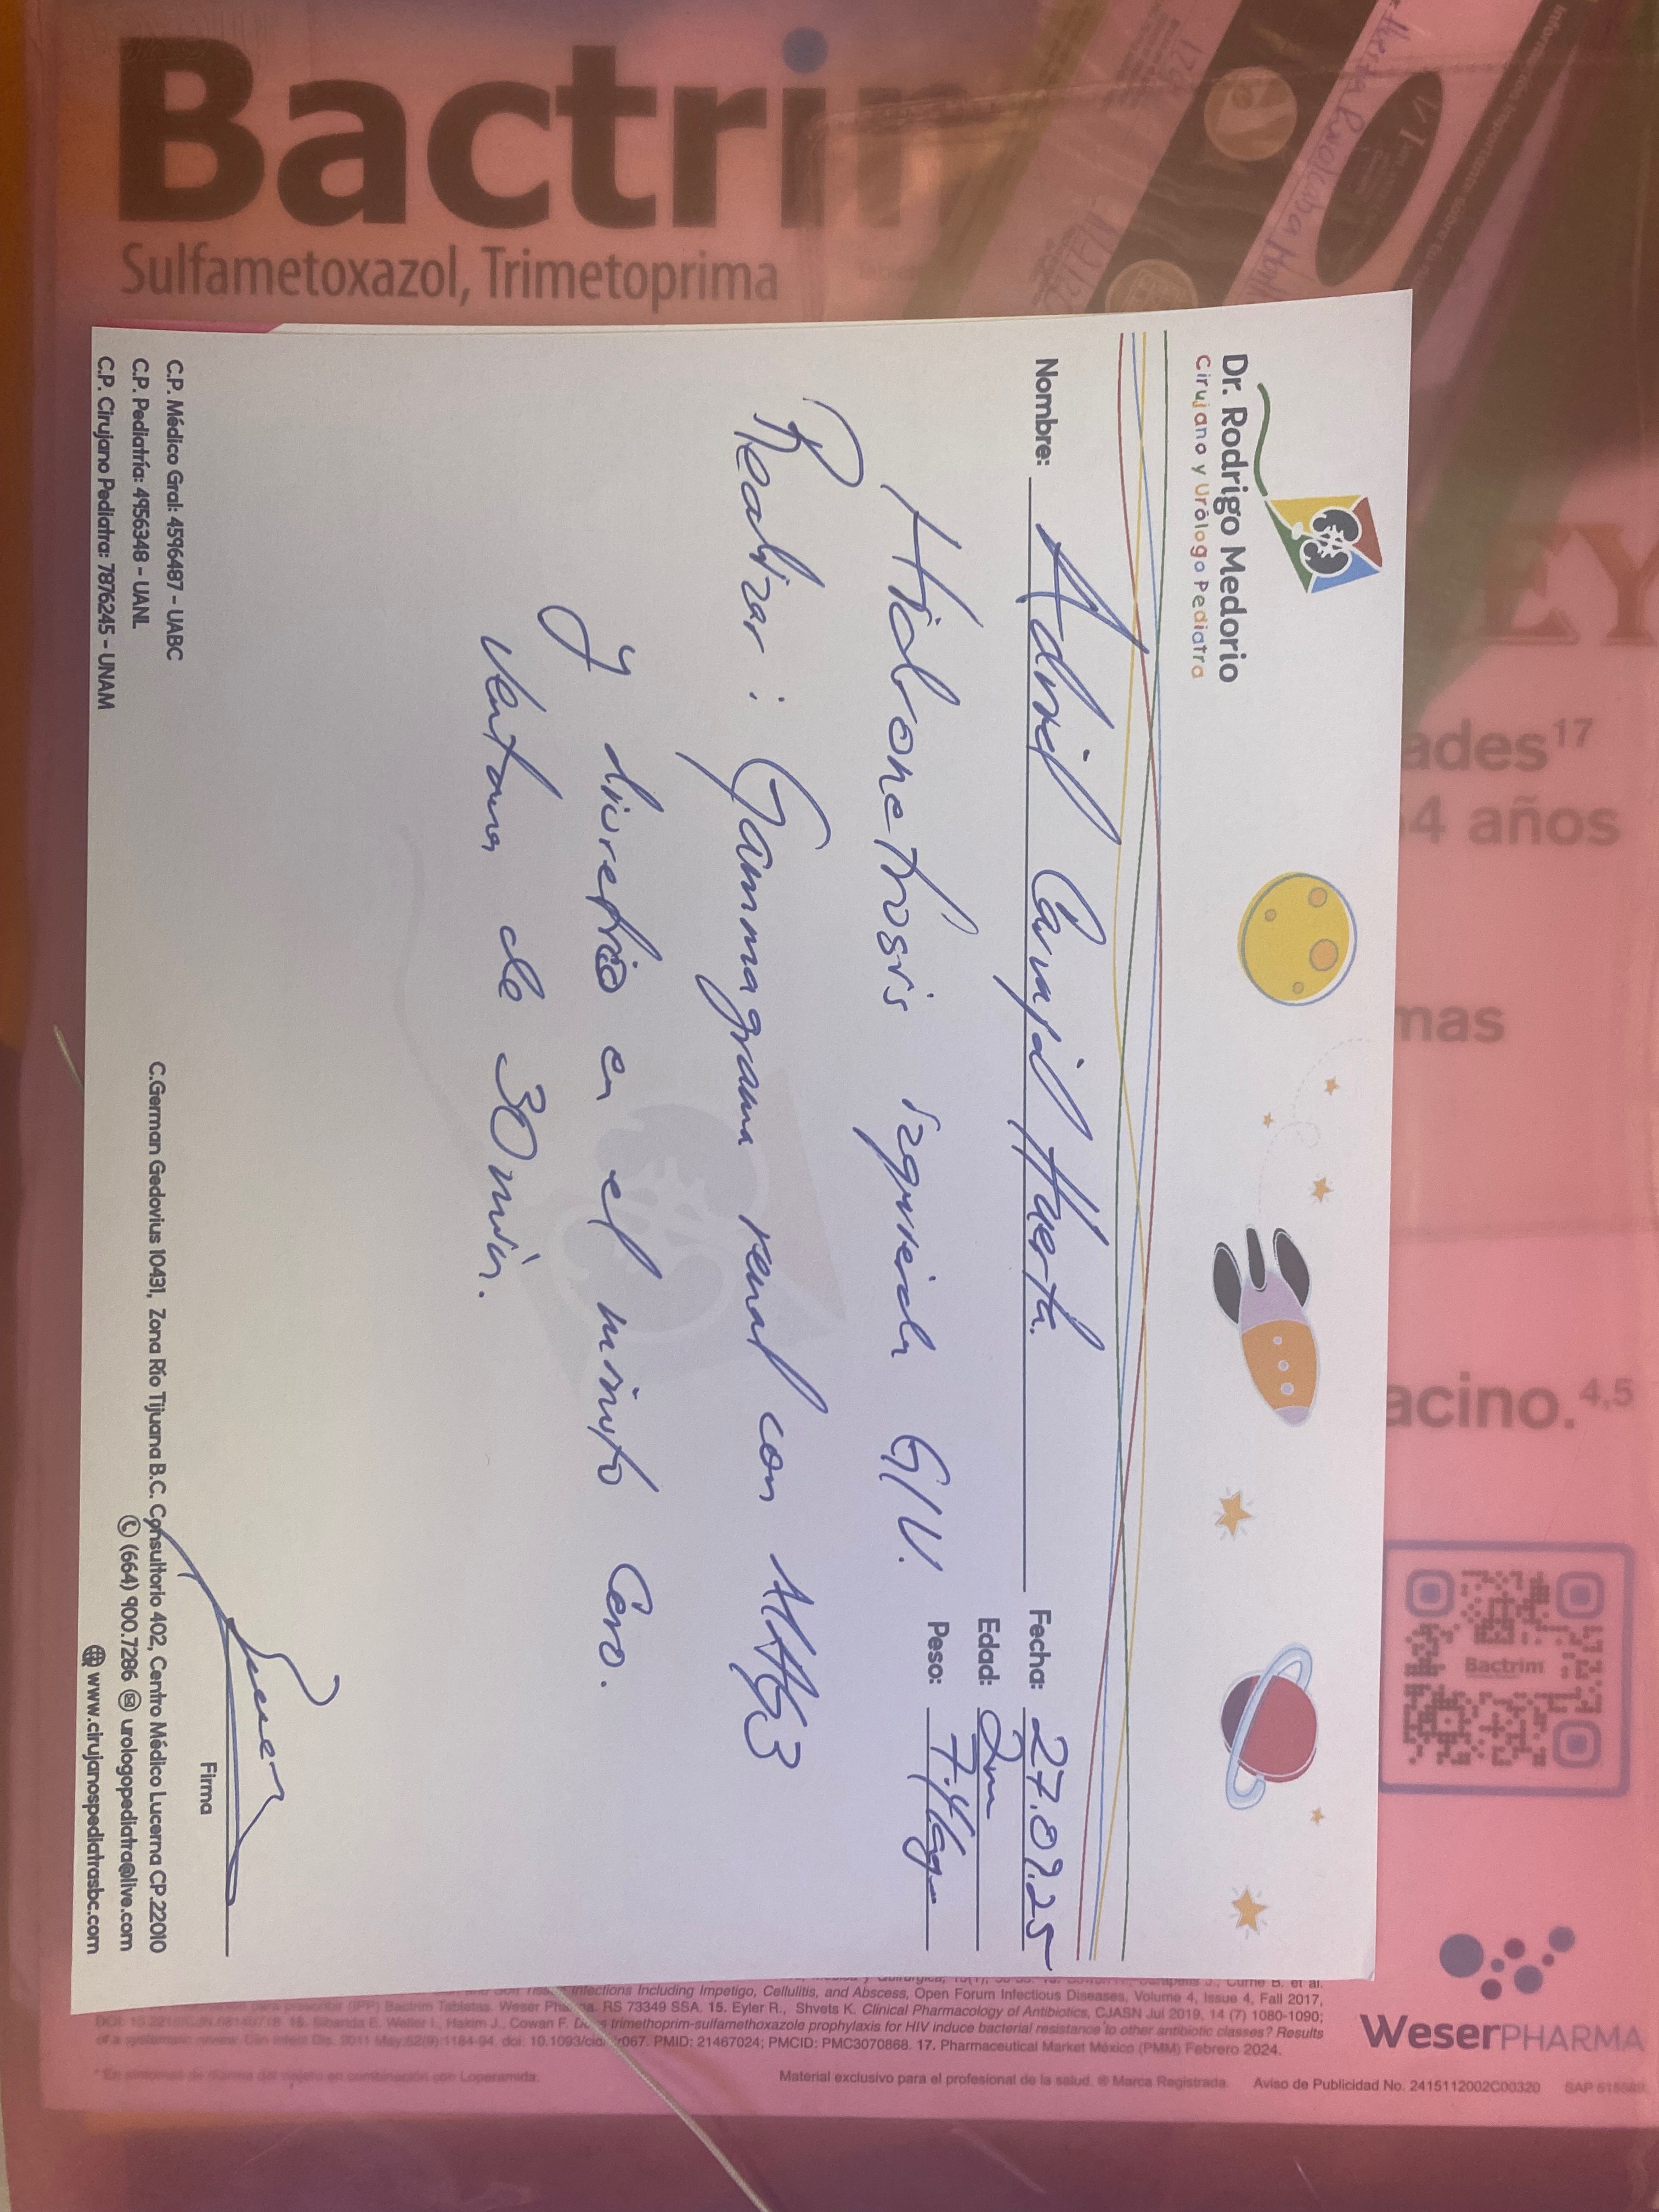 Bactrim
Sulfametoxazol, Trimetoprima
EY
ades¹⁷
4 años
mas
acino.⁴,⁵
Bactrim
WeserPHARMA
Dr. Rodrigo Medorio
Cirujano y Urólogo Pediatra
Nombre: Adriel Carvajal Huerta.
Fecha: 27.09.25
Edad: 9m
Peso: 7.4kg.
Hidronefrosis izquierda GIV.
Realizar: Gammagrama renal con MAG3
y diuretico en el minuto Cero.
Ventana de 30 min.
Firma
C.P. Médico Gral: 4596487 - UABC
C.P. Pediatría: 4956348 - UANL
C.P. Cirujano Pediatra: 7876245 - UNAM
C.German Gedovius 10431, Zona Río Tijuana B.C. Consultorio 402, Centro Médico Lucerna CP.22010
(664) 900.7286 urologopediatra@live.com
www.cirujanospediatrasbc.com
Infections Including Impetigo, Cellulitis, and Abscess, Open Forum Infectious Diseases, Volume 4, Issue 4, Fall 2017,
(IPP) Bactrim Tabletas. Weser Pharma. RS 73349 SSA. 15. Eyler R., Shvets K. Clinical Pharmacology of Antibiotics, CJASN Jul 2019, 14 (7) 1080-1090;
Hakim J., Cowan F. Does trimethoprim-sulfamethoxazole prophylaxis for HIV induce bacterial resistance to other antibiotic classes? Results
of a systematic review. Clin Infect Dis. 2011 May;52(9):1184-94. doi: 10.1093/cid/ 067. PMID: 21467024; PMCID: PMC3070868. 17. Pharmaceutical Market México (PMM) Febrero 2024.
Material exclusivo para el profesional de la salud. ® Marca Registrada. Aviso de Publicidad No. 2415112002C00320 SAP